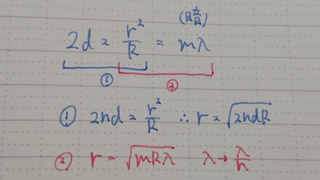 (暗)
2d = r²/R = mλ
① ②
① 2nd = r²/R ∴ r = √2ndR
② r = √mRλ λ → λ/n